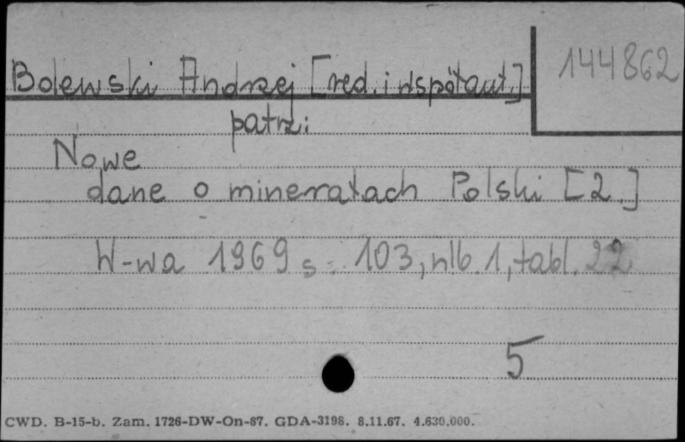 Bolewski Andrzej [red. i współaut.]
144862
patrz:
Nowe
dane o minerałach Polski [2.]
W-wa 1969 s. 103, nlb. 1, tabl. 22
5
CWD. B-15-b. Zam. 1726-DW-On-67. GDA-3198. 8.11.67. 4.630.000.